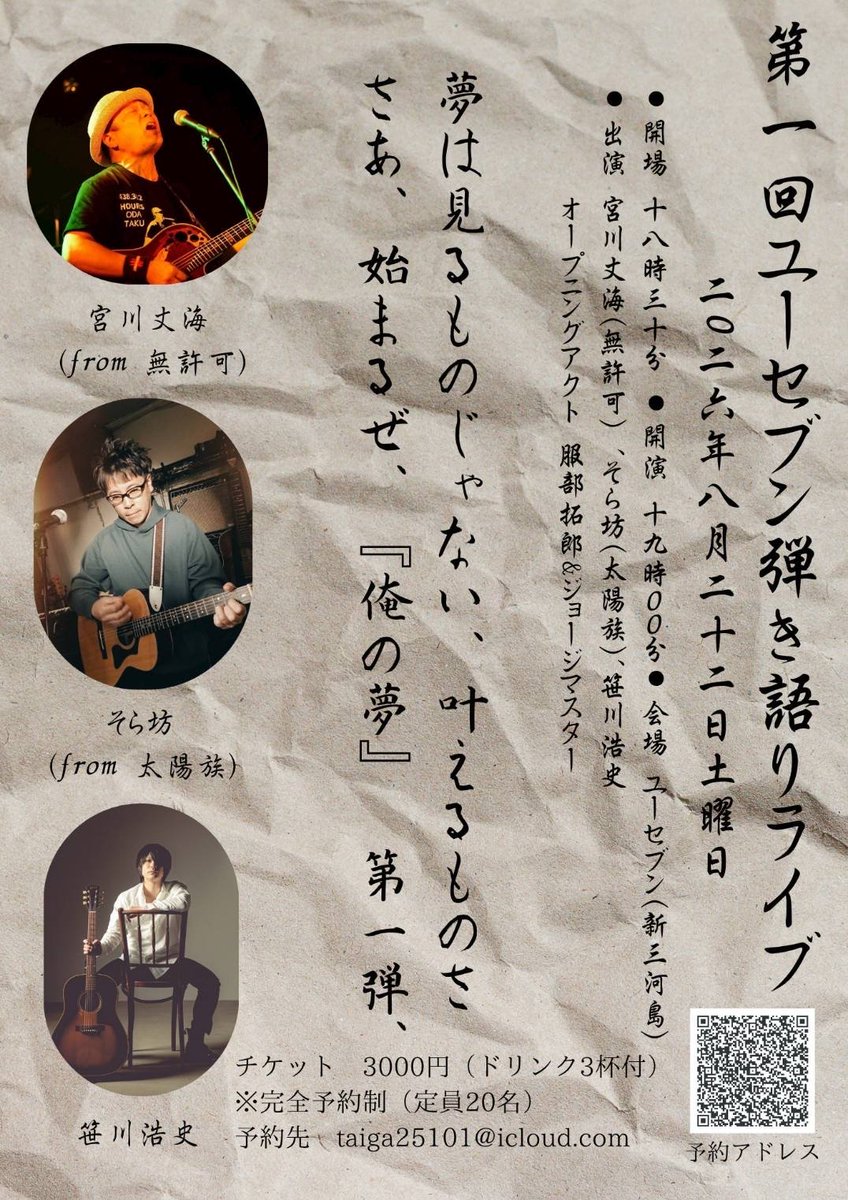 第一回ユーセブン弾き語りライブ
二〇二六年八月二十二日土曜日
● 開場 十八時三十分 ● 開演 十九時00分 ● 会場 ユーセブン(新三河島)
● 出演 宮川丈海(無許可)、そら坊(太陽族)、笹川浩史
オープニングアクト 服部拓郎&ジョージマスター
夢は見るものじゃない、叶えるものさ
さあ、始まるぜ、『俺の夢』 第一弾、
HOURS
ODA
TAKU
宮川丈海
(from 無許可)
そら坊
(from 太陽族)
笹川浩史
チケット 3000円（ドリンク3杯付）
※完全予約制（定員20名）
予約先 taiga25101@icloud.com
予約アドレス